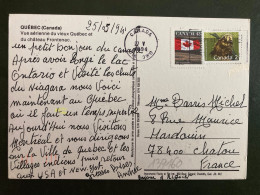 QUÉBEC (Canada)
Vue aérienne du vieux Québec et
du château Frontenac.
25/05/94
un petit bonjour du Canada
Après avoir longé le lac
Ontario et Visité les chutes
du Niagara nous Voici
maintenant au Québec
où il fait un temps superbe
Aujourd'hui nous visitons
Montréal et nous dirigeons
sur la Ville de Québec et les
Villages indiens puis retour
aux USA et New York
Grosses bises
CANADA
1994
Mme Michel
9 Rue Maurice
Hardouin
78400 Chatou
France